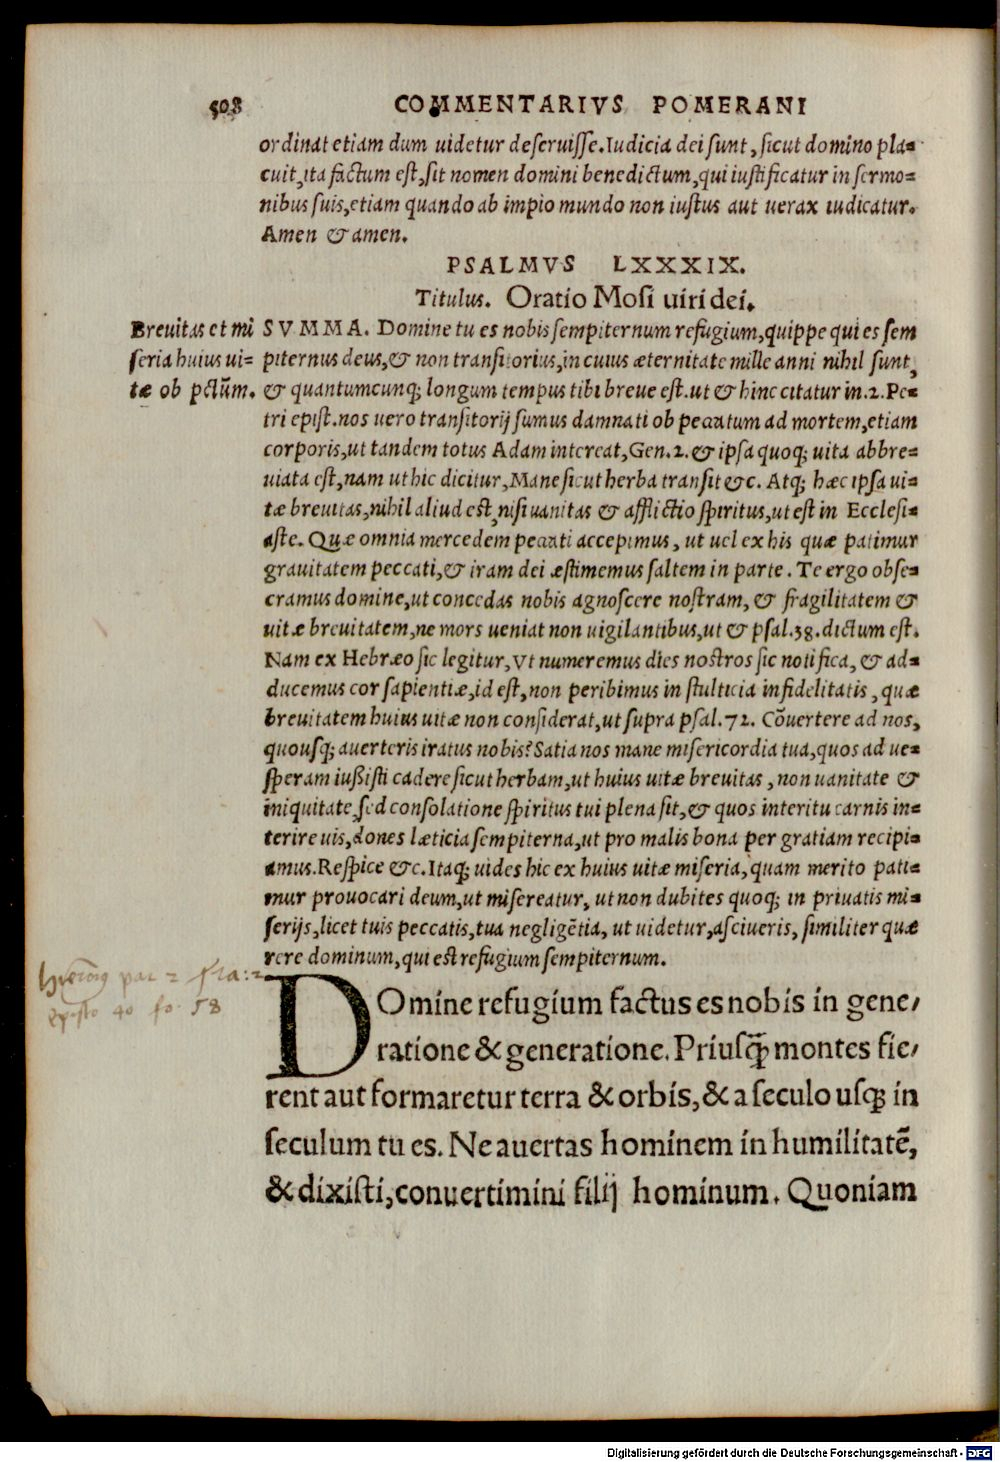 508 COMMENTARIVS POMERANI
ordinat etiam dum uidetur deseruisse. Iudicia dei sunt, sicut domino pla=
cuit, ita factum est, sit nomen domini benedictum, qui iustificatur in sermo=
nibus suis, etiam quando ab impio mundo non iustus aut uerax iudicatur.
Amen & amen.
PSALMVS LXXXIX.
Titulus. Oratio Mosi uiri dei.
Breuitas et mi
seria huius ui=
tæ ob pctũm.
SVMMA. Domine tu es nobis sempiternum refugium, quippe qui es sem
piternus deus, & non transitorius, in cuius æternitate mille anni nihil sunt,
& quantumcunq; longum tempus tibi breue est. ut & hinc citatur in .2. Pe=
tri epist. nos uero transitorij sumus damnati ob peccatum ad mortem, etiam
corporis, ut tandem totus Adam intereat, Gen. 2. & ipsa quoq; uita abbre=
uiata est, nam ut hic dicitur, Mane sicut herba transit &c. Atq; hæc ipsa ui=
tæ breuitas, nihil aliud est, nisi uanitas & afflictio spiritus, ut est in Ecclesi=
aste. Quæ omnia mercedem peccati accepimus, ut uel ex his quæ patimur
grauitatem peccati, & iram dei æstimemus saltem in parte. Te ergo obse=
cramus domine, ut concedas nobis agnoscere nostram, & fragilitatem &
uitæ breuitatem, ne mors ueniat non uigilantibus, ut & psal. 38. dictum est.
Nam ex Hebræo sic legitur, Vt numeremus dies nostros sic notifica, & ad=
ducemus cor sapientiæ, id est, non peribimus in stulticia infidelitatis, quæ
breuitatem huius uitæ non considerat, ut supra psal. 72. Cõuertere ad nos,
quousq; auerteris iratus nobis? Satia nos mane misericordia tua, quos ad ue=
speram iußisti cadere sicut herbam, ut huius uitæ breuitas, non uanitate &
iniquitate, sed consolatione spiritus tui plena sit, & quos interitu carnis in=
terire uis, dones læticia sempiterna, ut pro malis bona per gratiam recipi=
amus. Respice &c. Itaq; uides hic ex huius uitæ miseria, quam merito pati=
mur prouocari deum, ut misereatur, ut non dubites quoq; in priuatis mi=
serijs, licet tuis peccatis, tua negligẽtia, ut uidetur, asciueris, similiter quæ
rere dominum, qui est refugium sempiternum.
epısto 40 fo 58
DOmine refugium factus es nobis in gene,
ratione & generatione. Priusq̃ montes fie,
rent aut formaretur terra & orbis, & a seculo usq; in
seculum tu es. Ne auertas hominem in humilitatẽ,
& dixisti, conuertimini filij hominum. Quoniam
Digitalisierung gefördert durch die Deutsche Forschungsgemeinschaft - DFG